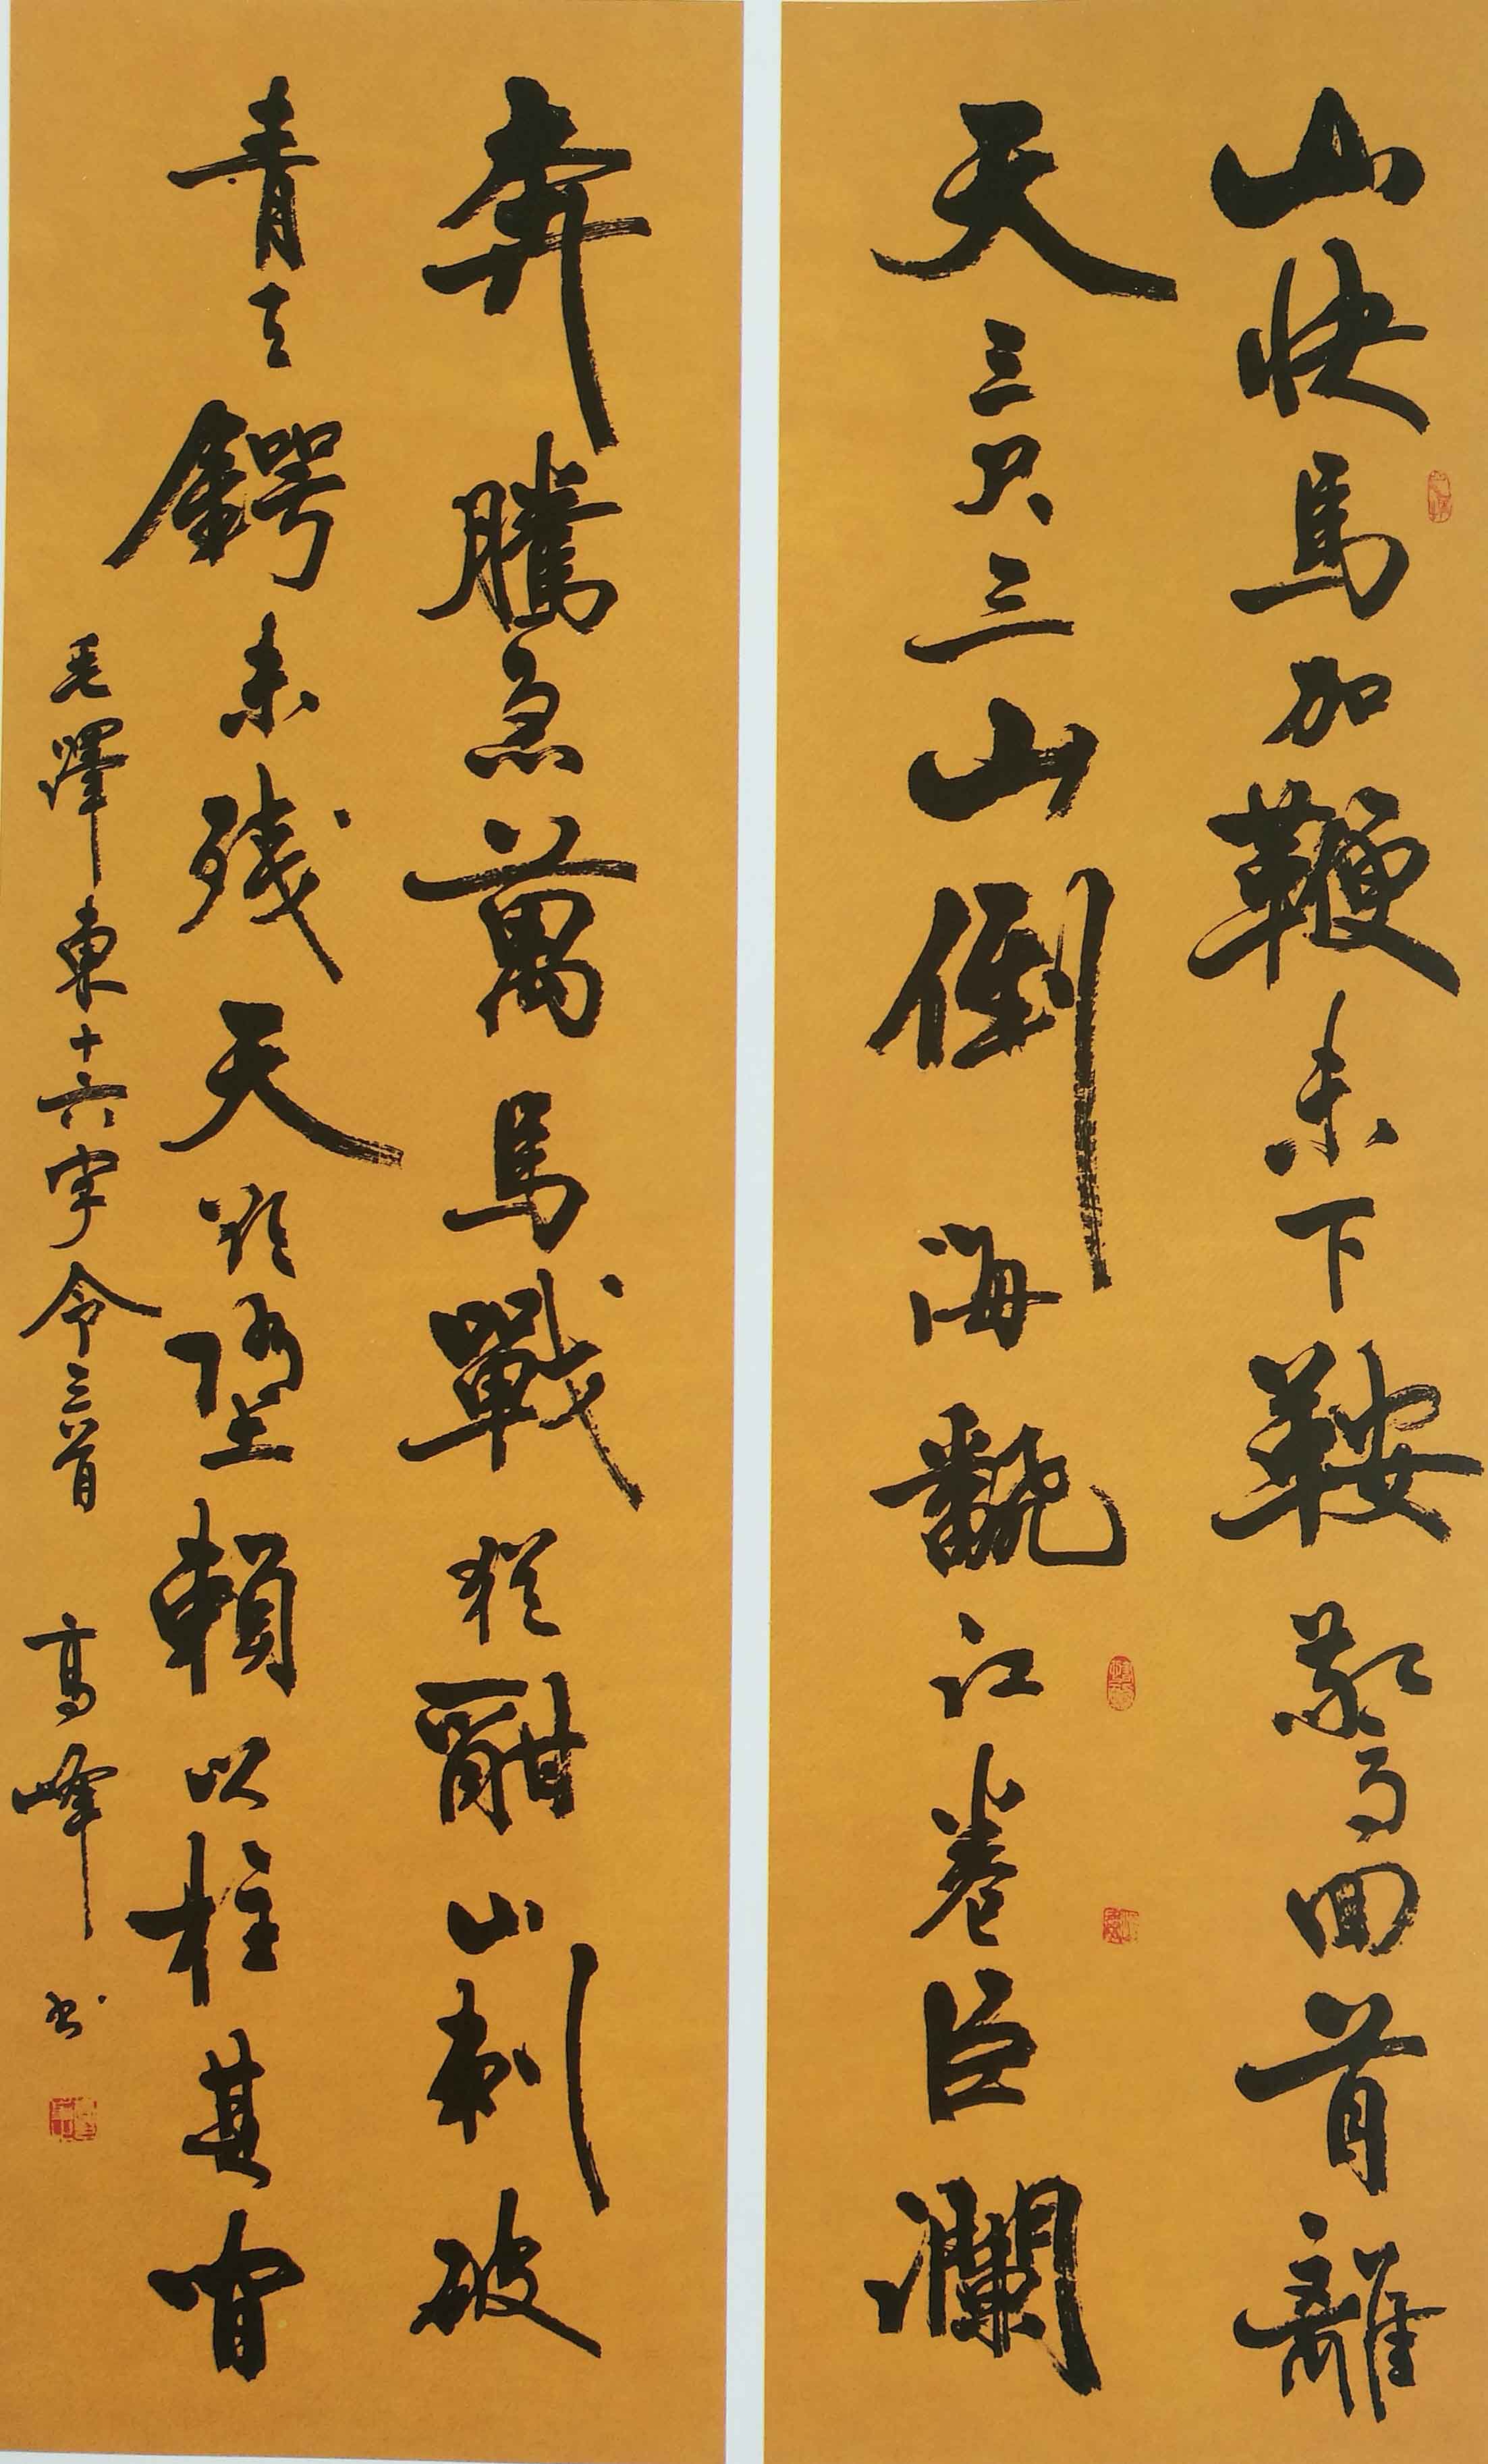 山快馬加鞭未下鞍驚回首離
天三尺三山倒海翻江卷巨瀾
奔騰急萬馬戰猶酣山刺破
青天鍔未残天欲墜賴以柱其間
毛澤東十六字令三首 高峰书